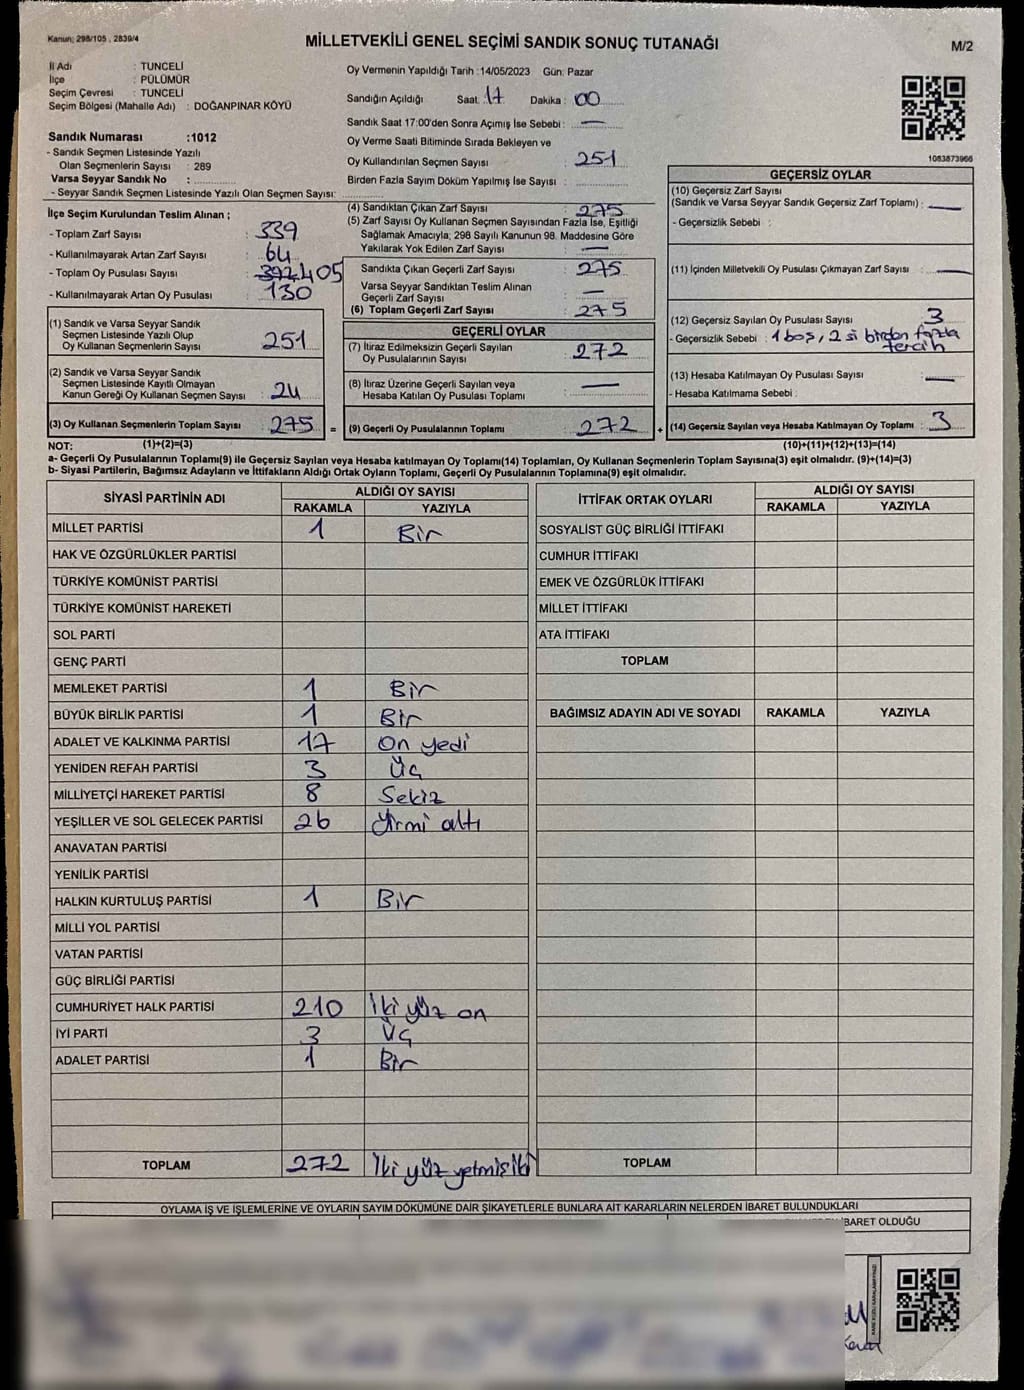 Kanun; 298/105 , 2839/4
MİLLETVEKİLİ GENEL SEÇİMİ SANDIK SONUÇ TUTANAĞI
M/2
İl Adı : TUNCELİ
İlçe : PÜLÜMÜR
Seçim Çevresi : TUNCELİ
Seçim Bölgesi (Mahalle Adı) : DOĞANPINAR KÖYÜ
Sandık Numarası :1012
- Sandık Seçmen Listesinde Yazılı
Olan Seçmenlerin Sayısı : 289
Varsa Seyyar Sandık No :
- Seyyar Sandık Seçmen Listesinde Yazılı Olan Seçmen Sayısı:
Oy Vermenin Yapıldığı Tarih :14/05/2023 Gün: Pazar
Sandığın Açıldığı Saat: 17 Dakika : 00
Sandık Saat 17:00'den Sonra Açımış İse Sebebi : —
Oy Verme Saati Bitiminde Sırada Bekleyen ve
Oy Kullandırılan Seçmen Sayısı : 251
Birden Fazla Sayım Döküm Yapılmış İse Sayısı :
1083873966
İlçe Seçim Kurulundan Teslim Alınan ;
- Toplam Zarf Sayısı : 339
- Kullanılmayarak Artan Zarf Sayısı : 64
- Toplam Oy Pusulası Sayısı : 392 405
- Kullanılmayarak Artan Oy Pusulası : 130
(1) Sandık ve Varsa Seyyar Sandık
Seçmen Listesinde Yazılı Olup
Oy Kullanan Seçmenlerin Sayısı 251
(2) Sandık ve Varsa Seyyar Sandık
Seçmen Listesinde Kayıtlı Olmayan
Kanun Gereği Oy Kullanan Seçmen Sayısı : 24
(3) Oy Kullanan Seçmenlerin Toplam Sayısı : 275 =
(4) Sandıktan Çıkan Zarf Sayısı : 275
(5) Zarf Sayısı Oy Kullanan Seçmen Sayısından Fazla İse, Eşitliği
Sağlamak Amacıyla; 298 Sayılı Kanunun 98. Maddesine Göre
Yakılarak Yok Edilen Zarf Sayısı : —
Sandıkta Çıkan Geçerli Zarf Sayısı : 275
Varsa Seyyar Sandıktan Teslim Alınan
Geçerli Zarf Sayısı : —
(6) Toplam Geçerli Zarf Sayısı : 275
GEÇERLİ OYLAR
(7) İtiraz Edilmeksizin Geçerli Sayılan
Oy Pusulalarının Sayısı : 272
(8) İtiraz Üzerine Geçerli Sayılan veya
Hesaba Katılan Oy Pusulası Toplamı : —
(9) Geçerli Oy Pusulalarının Toplamı : 272 +
GEÇERSİZ OYLAR
(10) Geçersiz Zarf Sayısı
(Sandık ve Varsa Seyyar Sandık Geçersiz Zarf Toplamı) : —
- Geçersizlik Sebebi :
(11) İçinden Milletvekili Oy Pusulası Çıkmayan Zarf Sayısı : —
(12) Geçersiz Sayılan Oy Pusulası Sayısı : 3
- Geçersizlik Sebebi : 1 boş, 2 si birden fazla
tercih
(13) Hesaba Katılmayan Oy Pusulası Sayısı : —
- Hesaba Katılmama Sebebi :
(14) Geçersiz Sayılan veya Hesaba Katılmayan Oy Toplamı : 3
NOT: (1)+(2)=(3) (10)+(11)+(12)+(13)=(14)
a- Geçerli Oy Pusulalarının Toplamı(9) ile Geçersiz Sayılan veya Hesaba katılmayan Oy Toplamı(14) Toplamları, Oy Kullanan Seçmenlerin Toplam Sayısına(3) eşit olmalıdır. (9)+(14)=(3)
b- Siyasi Partilerin, Bağımsız Adayların ve İttifakların Aldığı Ortak Oyların Toplamı, Geçerli Oy Pusulalarının Toplamına(9) eşit olmalıdır.
SİYASİ PARTİNİN ADI ALDIĞI OY SAYISI
RAKAMLA YAZIYLA
MİLLET PARTİSİ 1 Bir
HAK VE ÖZGÜRLÜKLER PARTİSİ
TÜRKİYE KOMÜNİST PARTİSİ
TÜRKİYE KOMÜNİST HAREKETİ
SOL PARTİ
GENÇ PARTİ
MEMLEKET PARTİSİ 1 Bir
BÜYÜK BİRLİK PARTİSİ 1 Bir
ADALET VE KALKINMA PARTİSİ 17 On yedi
YENİDEN REFAH PARTİSİ 3 Üç
MİLLİYETÇİ HAREKET PARTİSİ 8 Sekiz
YEŞİLLER VE SOL GELECEK PARTİSİ 26 Yirmi altı
ANAVATAN PARTİSİ
YENİLİK PARTİSİ
HALKIN KURTULUŞ PARTİSİ 1 Bir
MİLLİ YOL PARTİSİ
VATAN PARTİSİ
GÜÇ BİRLİĞİ PARTİSİ
CUMHURİYET HALK PARTİSİ 210 İki yüz on
İYİ PARTİ 3 Üç
ADALET PARTİSİ 1 Bir
TOPLAM 272 İki yüz yetmiş iki
İTTİFAK ORTAK OYLARI ALDIĞI OY SAYISI
RAKAMLA YAZIYLA
SOSYALİST GÜÇ BİRLİĞİ İTTİFAKI
CUMHUR İTTİFAKI
EMEK VE ÖZGÜRLÜK İTTİFAKI
MİLLET İTTİFAKI
ATA İTTİFAKI
TOPLAM
BAĞIMSIZ ADAYIN ADI VE SOYADI RAKAMLA YAZIYLA
TOPLAM
OYLAMA İŞ VE İŞLEMLERİNE VE OYLARIN SAYIM DÖKÜMÜNE DAİR ŞİKAYETLERLE BUNLARA AİT KARARLARIN NELERDEN İBARET BULUNDUKLARI
İBARET OLDUĞU